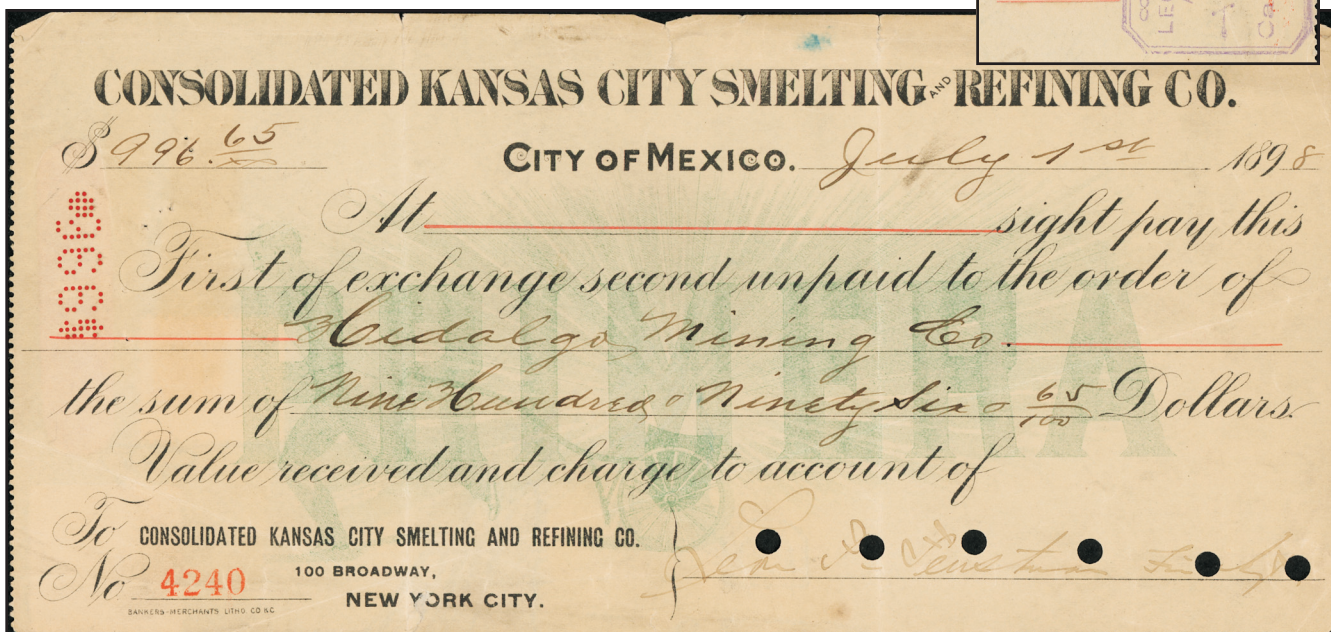 LEG
Ca
CONSOLIDATED KANSAS CITY SMELTING AND REFINING CO.
$ 996.65/xx CITY OF MEXICO. July 1st 1898
At sight pay this
First of exchange second unpaid to the order of
Hidalgo Mining Co.
$996$
PRIMERA
the sum of Nine Hundred & Ninety Six & 65/100 Dollars.
Value received and charge to account of
To CONSOLIDATED KANSAS CITY SMELTING AND REFINING CO.
No 4240 100 BROADWAY,
NEW YORK CITY.
BANKERS-MERCHANTS LITHO CO KC